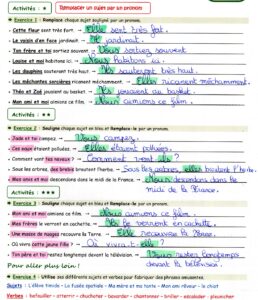 Activités : ★
Remplacer un sujet par un pronom
• Exercice 1 - Remplace chaque sujet souligné par un pronom.
• Cette fleur sent très fort. → Elle sent très fort.
• Le voisin d'en face jardinait. → Il jardinait.
• Ton frère et toi sortez souvent. → Vous sortez souvent
• Louise et moi habitons ici. → Nous habitons ici.
• Les dauphins sauteront très haut. → Ils sauteront très haut.
• Les méchantes sorcières ricanent méchamment. → Elles ricanent méchamment.
• Théo et Zoé jouaient au basket. → Ils jouaient au basket.
• Mon ami et moi aimons ce film. → Nous aimons ce film.
Activités : ★★
Exercice 2 - Souligne chaque sujet en bleu et Remplace-le par un pronom.
• Jade et toi campez. → Vous campez.
• Ces eaux étaient polluées. → Elles étaient polluées.
• Comment vont tes neveux ? → Comment vont-ils ?
• Sous les arbres, des brebis broutent l'herbe. → Sous les arbres, elles broutent l'herbe.
• Mon ami et moi descendons dans le midi de la France. → Nous descendons dans le
midi de la France.
Activités : ★★★
Exercice 3 - Souligne chaque sujet en bleu et Remplace-le par un pronom.
• Mon ami et moi aimions ce film. → Nous aimions ce film.
• Mes frères le verront en cachette. → Ils le verront en cachette.
• Une masse de nuages recouvre la Meuse. → Elle recouvre la Meuse.
• Où vivra cette jeune fille ? → Où vivra-t-elle ?
• Ton père et toi restez longtemps devant la télévision. → Vous restez longtemps
devant la télévision.
Pour aller plus loin !
Exercice 4 - Utilise ces différents sujets et verbes pour fabriquer des phrases amusantes.